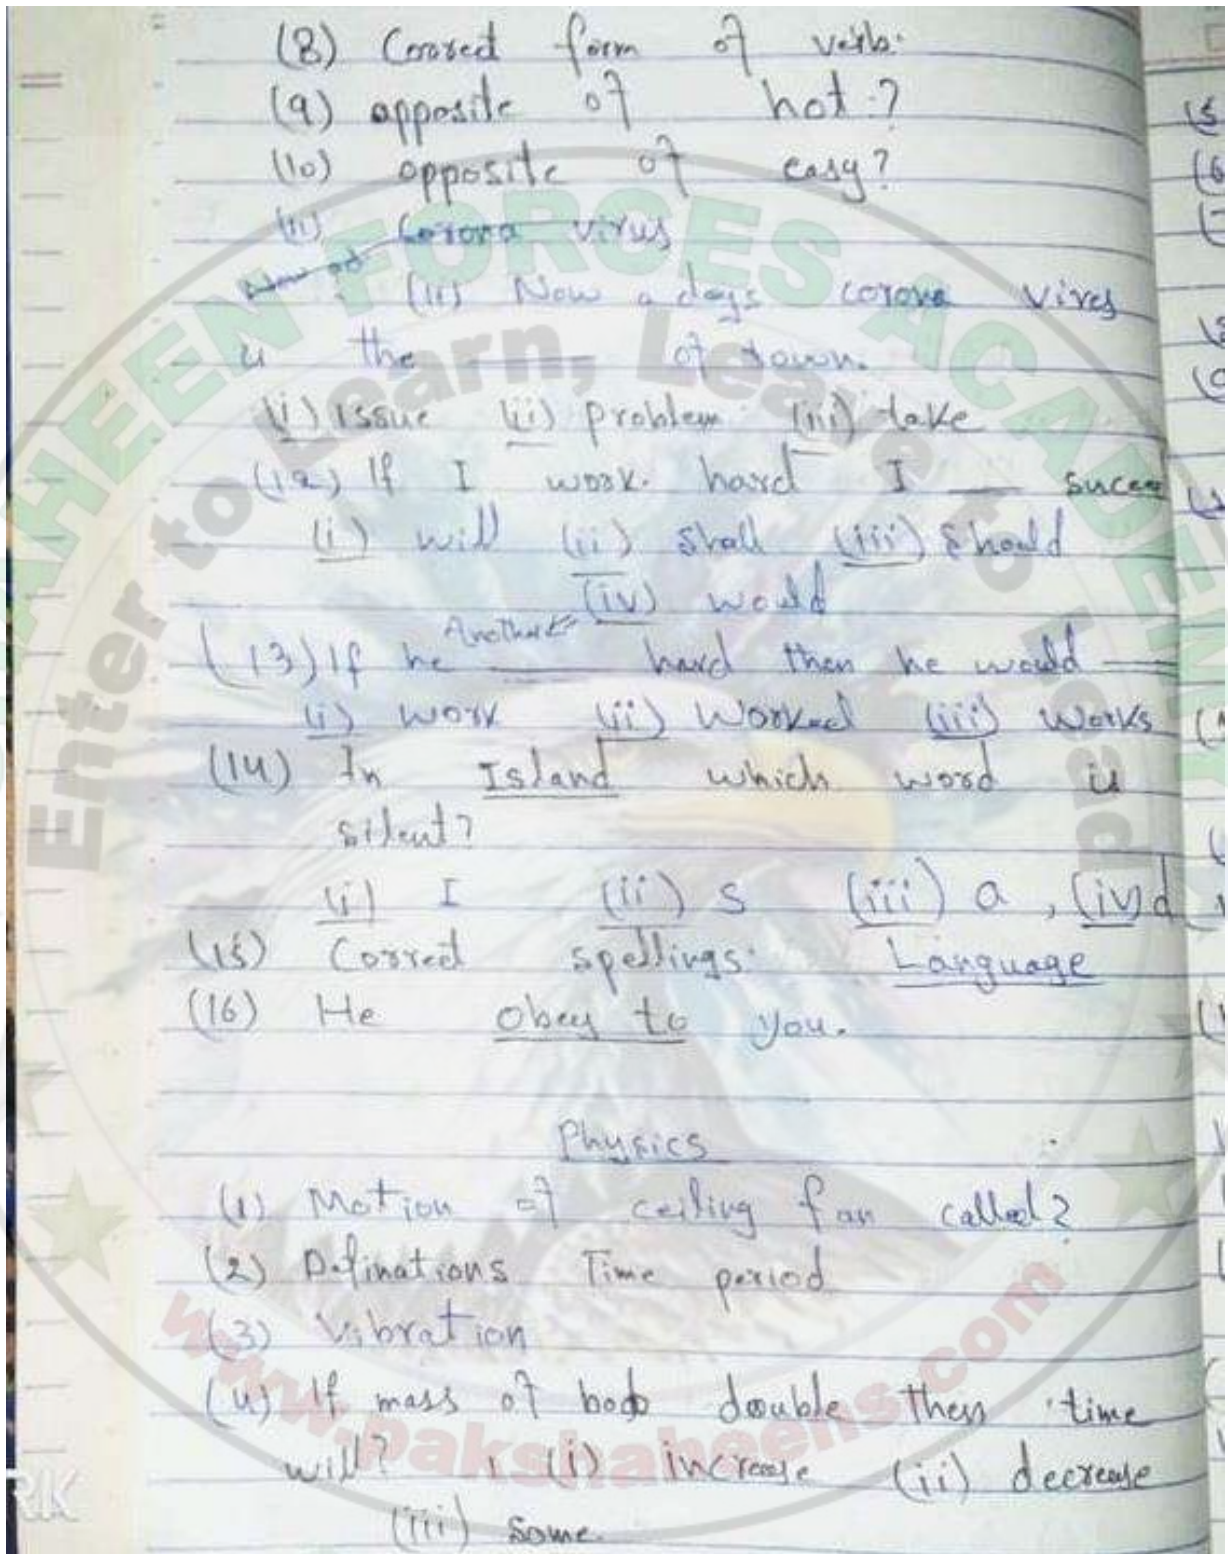 (8) Correct form of verb.
(9) opposite of hot.?
(10) opposite of easy?
(11) Corona virus
(11) Now a days corona virus
is the ____ of town.
(i) issue (ii) problem (iii) take
(12) If I work hard I ____
(i) will (ii) shall (iii) should
(iv) would
Another
(13) If he ____ hard then he would ____
(i) work (ii) worked (iii) works
(14) In Island which word is
silent?
(i) I (ii) s (iii) a, (iv) d
(15) Correct spellings: Language
(16) He obey to you.
Physics
(1) Motion of ceiling fan called?
(2) Definations Time period
(3) Vibration
(4) If mass of bob double then time
will? , (i) increase (ii) decrease
(iii) Same.
SHAHEEN FORCES ACADEMY
Enter to Learn, Leave to Lead
www.pakshaheens.com
RK